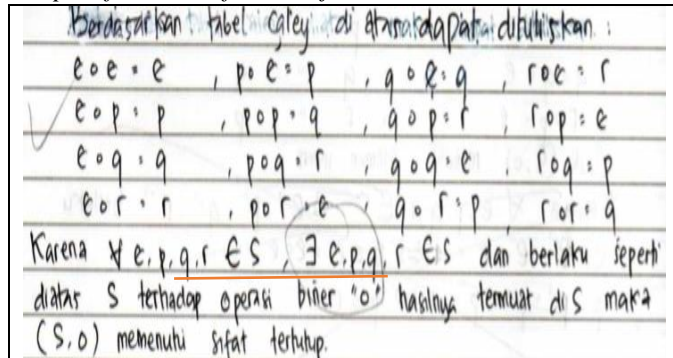 Berdasarkan tabel caley di atas dapat dituliskan :
e o e = e , p o e = p , q o e = q , r o e = r
e o p = p , p o p = q , q o p = r , r o p = e
e o q = q , p o q = r , q o q = e , r o q = p
e o r = r , p o r = e , q o r = p , r o r = q
Karena ∀ e, p, q, r ∈ S , ∃ e, p, q, r ∈ S dan berlaku seperti
diatas S terhadap operasi biner "o" hasilnya termuat di S maka
(S, o) memenuhi sifat tertutup.